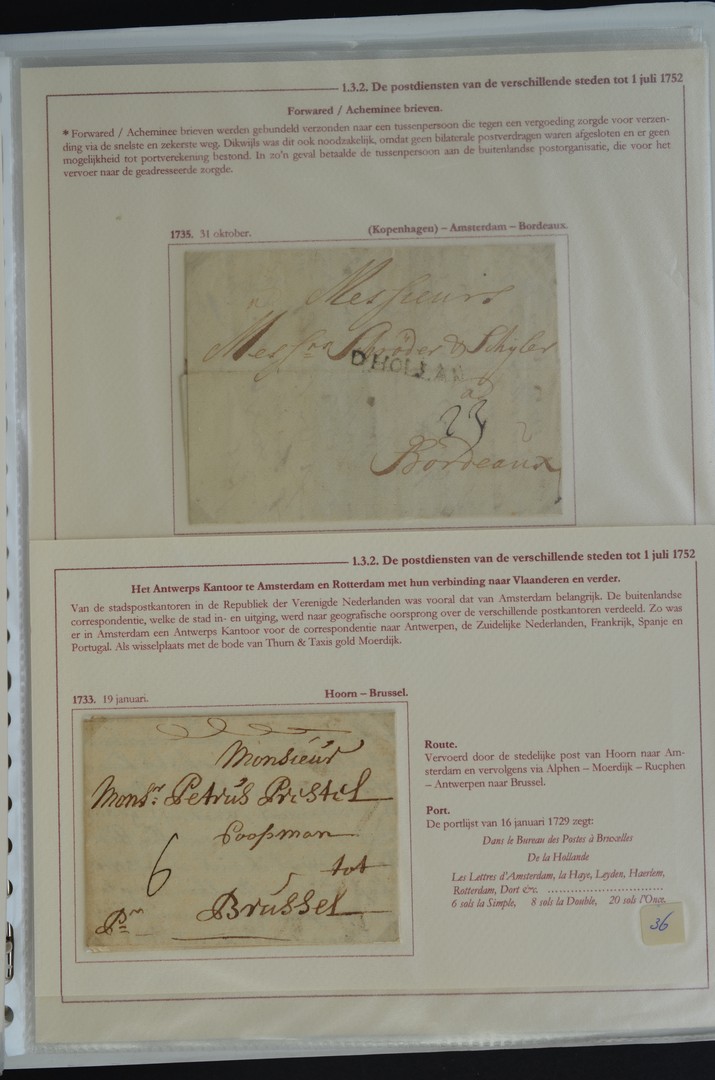 1.3.2. De postdiensten van de verschillende steden tot 1 juli 1752
Forwared / Acheminee brieven.
* Forwared / Acheminee brieven werden gebundeld verzonden naar een tussenpersoon die tegen een vergoeding zorgde voor verzen-
ding via de snelste en zekerste weg. Dikwijls was dit ook noodzakelijk, omdat geen bilaterale postverdragen waren afgesloten en er geen
mogelijkheid tot portverekening bestond. In zo'n geval betaalde de tussenpersoon aan de buitenlandse postorganisatie, die voor het
vervoer naar de geadresseerde zorgde.
1735. 31 oktober. (Kopenhagen) – Amsterdam – Bordeaux.
Messieurs
Messrs Schröder & Schyler
D HOLLAN
a
23
Bordeaux
1.3.2. De postdiensten van de verschillende steden tot 1 juli 1752
Het Antwerps Kantoor te Amsterdam en Rotterdam met hun verbinding naar Vlaanderen en verder.
Van de stadspostkantoren in de Republiek der Verenigde Nederlanden was vooral dat van Amsterdam belangrijk. De buitenlandse
correspondentie, welke de stad in- en uitging, werd naar geografische oorsprong over de verschillende postkantoren verdeeld. Zo was
er in Amsterdam een Antwerps Kantoor voor de correspondentie naar Antwerpen, de Zuidelijke Nederlanden, Frankrijk, Spanje en
Portugal. Als wisselplaats met de bode van Thurn & Taxis gold Moerdijk.
1733. 19 januari. Hoorn – Brussel.
Monsieur
Monsr. Petrus Pristel
Coopman
6 tot
Brussel
Route.
Vervoerd door de stedelijke post van Hoorn naar Am-
sterdam en vervolgens via Alphen – Moerdijk – Rucphen
– Antwerpen naar Brussel.
Port.
De portlijst van 16 januari 1729 zegt:
Dans le Bureau des Postes à Bruxelles
De la Hollande
Les Lettres d'Amsterdam, la Haye, Leyden, Haerlem,
Rotterdam, Dort &c. ................................
6 sols la Simple, 8 sols la Double, 20 sols l'Once.
36